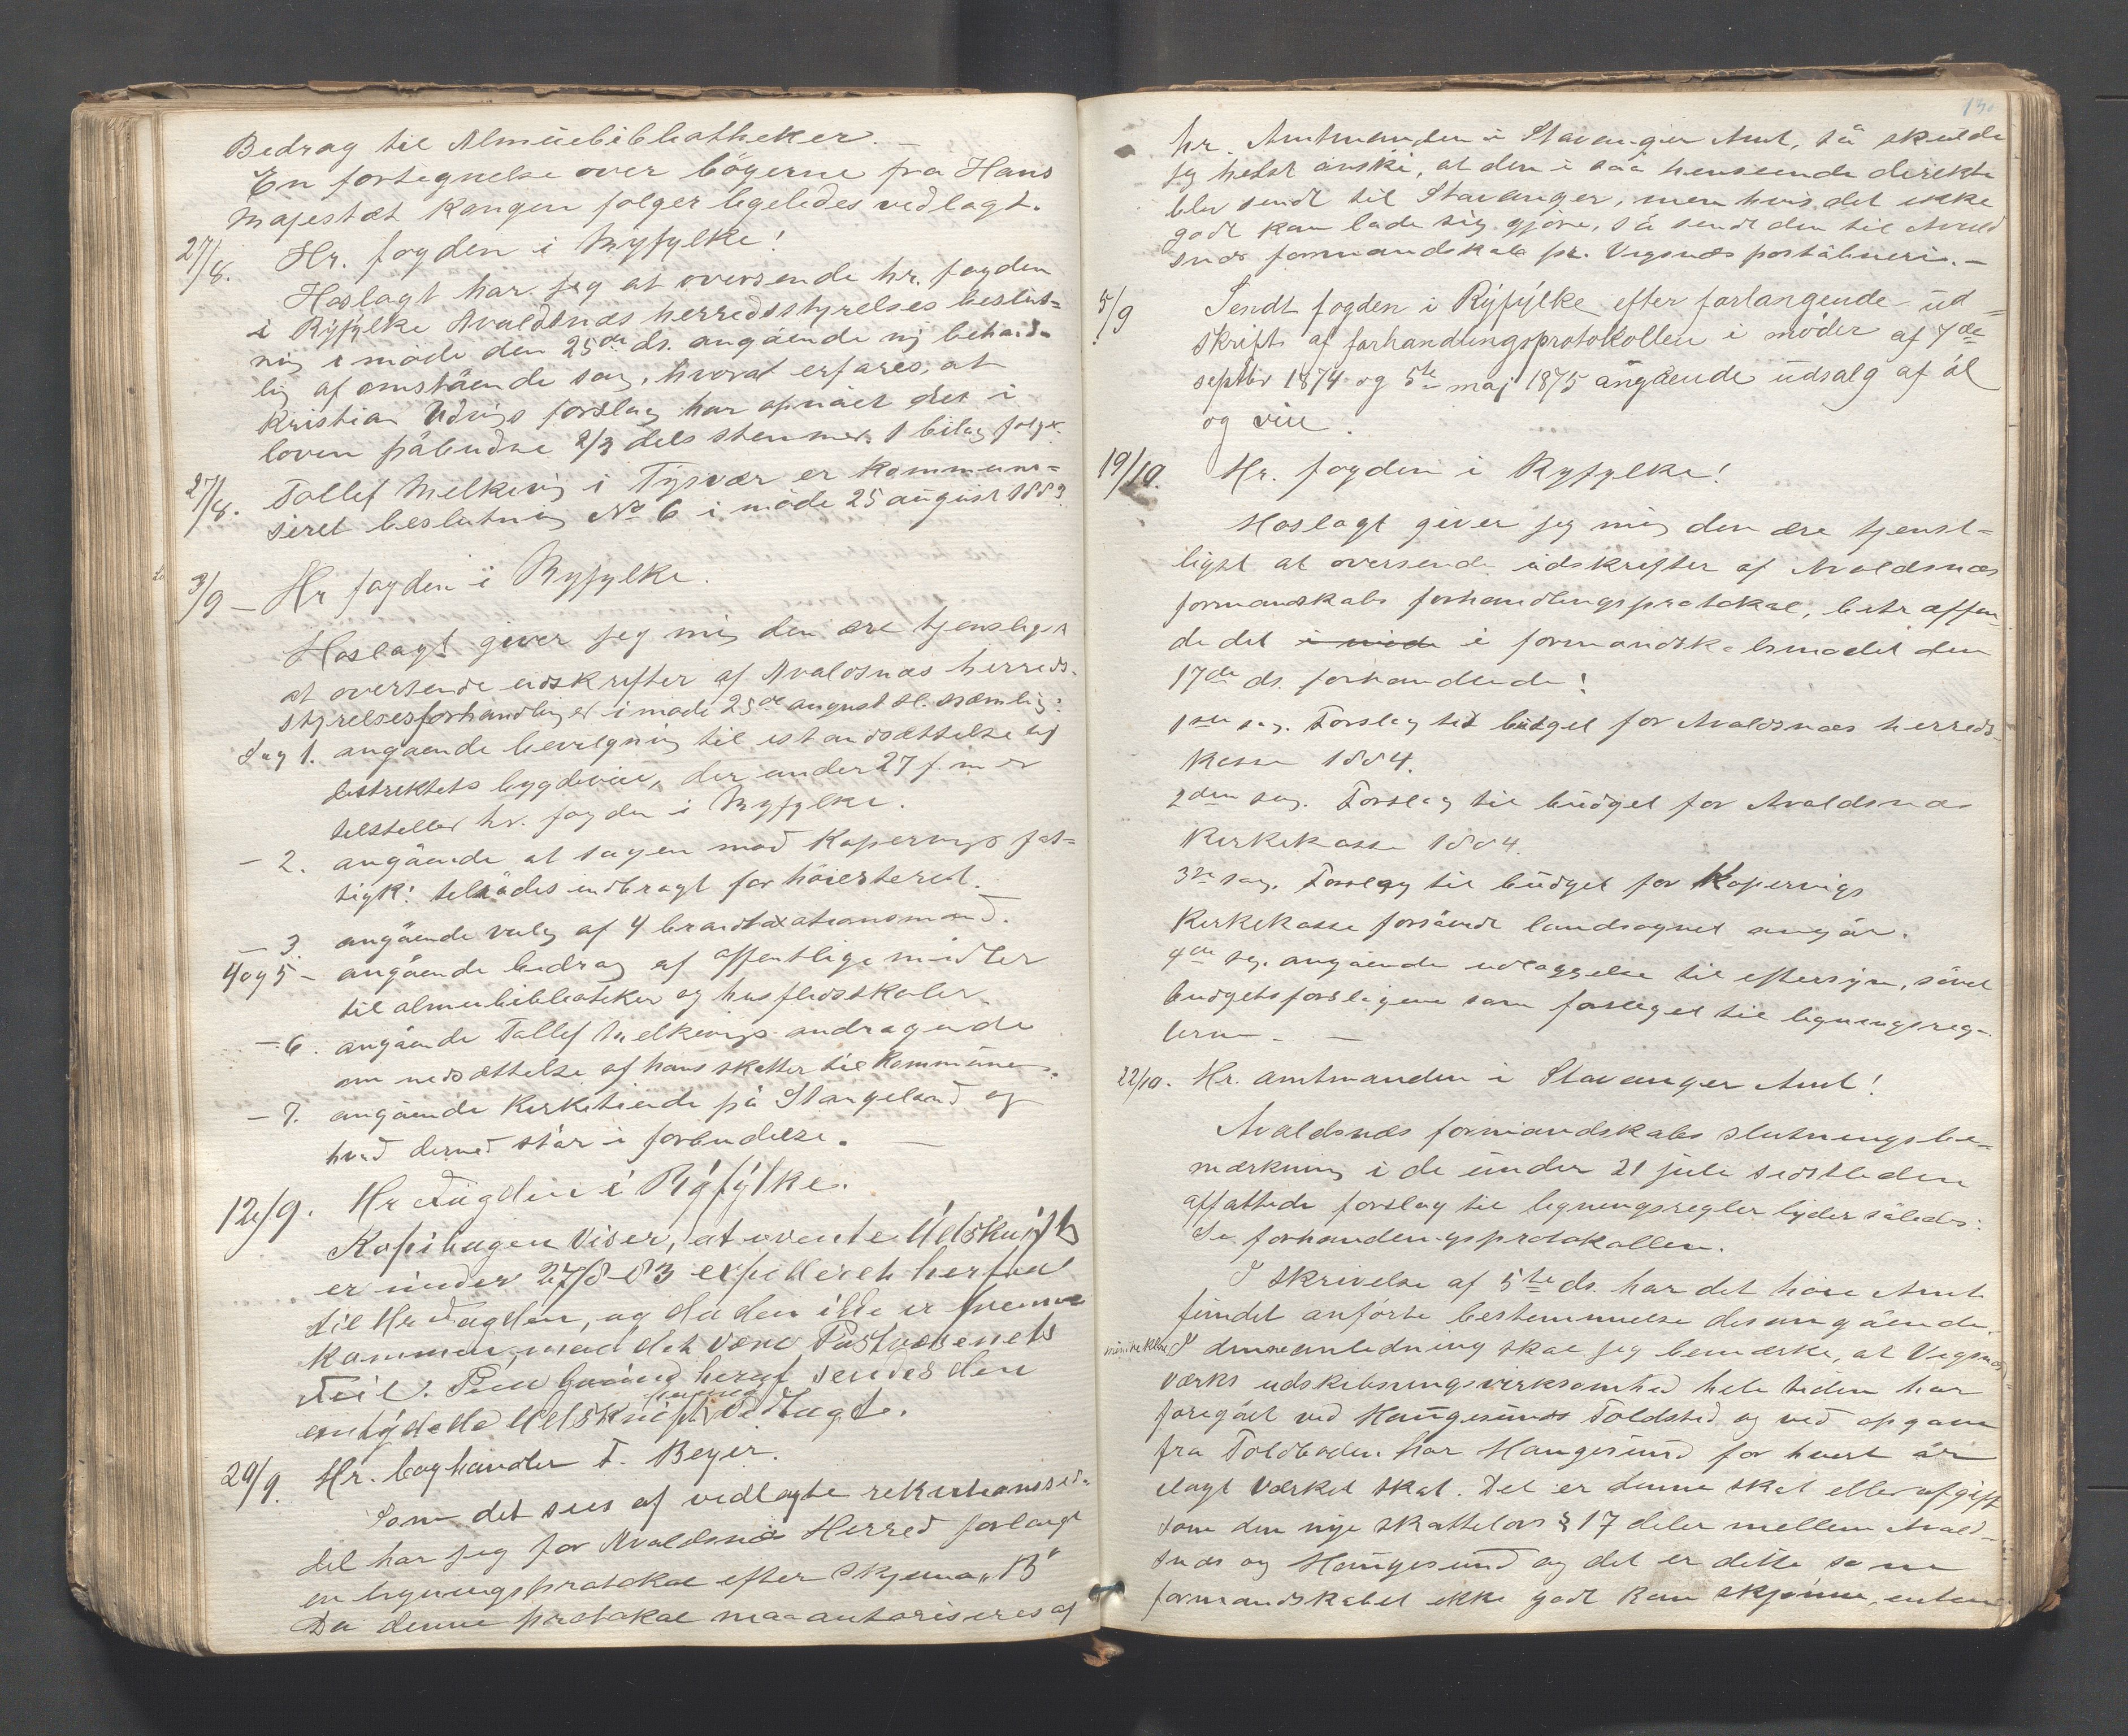 Bedrag til Almuebibliotheker. –
En fortegnelse over bögerne fra Hans
Majestæt Kongen følger ligeledes vedlagt.
27/8. Hr. fogden i Ryfylke!
Hoslagt har jeg at oversende hr. fogden
i Ryfylke Avaldsnæs herredsstyrelses beslut=
ning i møde den 25de ds. angående ny behand-
ling af omstående sag, hvoraf erfares, at
Kristian Udvigs forslag har opnået det i
loven påbudne 2/3 dels stemmer. 1 bilag følger.
27/8. Tollef Melkevig i Tysvær er kommuni=
seret beslutning No 6 i møde 25 august 1883
3/9 – Hr fogden i Ryfylke.
Hoslagt giver jeg mig den ære tjensligst
at oversende udskrifter af Avaldsnæs herreds-
styrelsesforhandlinger i møde 25de august sl. nemlig:
Sag 1. angående bevilgning til istandsættelse af
distriktets bygdeveie, der under 27 f. m er
tilstillet hr. fogden i Ryfylke.
– 2. angående at sagen mod Kopervigs fat=
tigk: tilrådes indbragt for höiesteret.
– 3. angående valg af 4 brandtaxationsmænd.
4 og 5 – angående bedrag af offentlige midler
til almuebiblioteker og husflidsskoler.
– 6. angående Tollef Melkevigs andragende
om nedsættelse af hans skatter til kommunen.
– 7. angående Kirketiende på Stangeland og
hvad dermed står i forbindelse. –
12/9. Hr Fogden i Ryfylke.
Kopibogen viser, at ovente Udskrift
er under 27/8-83 expederet herfra
til Hr Fogden, og da den ikke er fremme
kommen, maa det være Postvæsenets
Feil. Paa Grund heraf sendes den
omtydede Udskrift vedlagt.
29/9. Hr. boghandler F. Beyer.
Som det sees af vedlagte rekvisionssed-
del har jeg for Avaldsnæs Herred forlangt
en ligningsprotokol efter Skjema „B"
Da denne protokol maa autoriseres af
130
hr. Amtmanden i Stavanger Amt, så skulde
jeg helst ønske, at den i saa henseende direkte
blev sendt til Stavanger, men hvis det ikke
godt kan lade sig gjöre, så sendt den til Avald
snæs formandskab pr. Vigsnæs poståbneri. –
5/9 Sendt fogden i Ryfylke efter forlangende ud=
skrift af forhandlingsprotokollen i möder af 7de
septbr 1874 og 5te maj 1875 angående udsalg af öl
og vin.
19/10. Hr. fogden i Ryfylke!
Hoslagt giver jeg mig den ære tjenst=
ligst at oversende udskrifter af Avaldsnæs
formandskabs forhandlingsprotokol, betræffen-
de det i møde i formandskabsmødet den
17de ds. forhandlede!
1ste sag. Forslag til budget for Avaldsnæs herreds-
kasse 1884.
2den sag. Forslag til budget for Avaldsnæs
Kirkekasse 1884.
3die sag. Forslag til budget for Kopervigs
Kirkekasse forsåvidt landsognet angår.
4de sag. angående udlæggelse til eftersyn, såvel
budgetsforslagene som forslaget til ligningsreg-
lerne. –
22/10. Hr. amtmanden i Stavanger Amt!
Avaldsnæs formandskabs slutningsbe=
mærkning i de under 21 juli sidstleden
affattede forslag til ligningsregler lyder således:
Se forhandlingsprotokollen.
I skrivelse af 5te ds. har det höie Amt
fundet anförte bestemmelse desangående.
I denne anledning skal jeg bemærke, at Vigsnæs
værks udskibningsvirksomhed hele tiden har
foregået ved Haugesunds Toldsted og ved opgave
fra Toldboden har Haugesund for hvert år
ilagt Værket skat. Det er denne skat eller afgift
som den nye skattelovs § 17 deler mellem Avald-
snæs og Haugesund og det er dette som
formandskabet ikke godt kan skjönne, enten